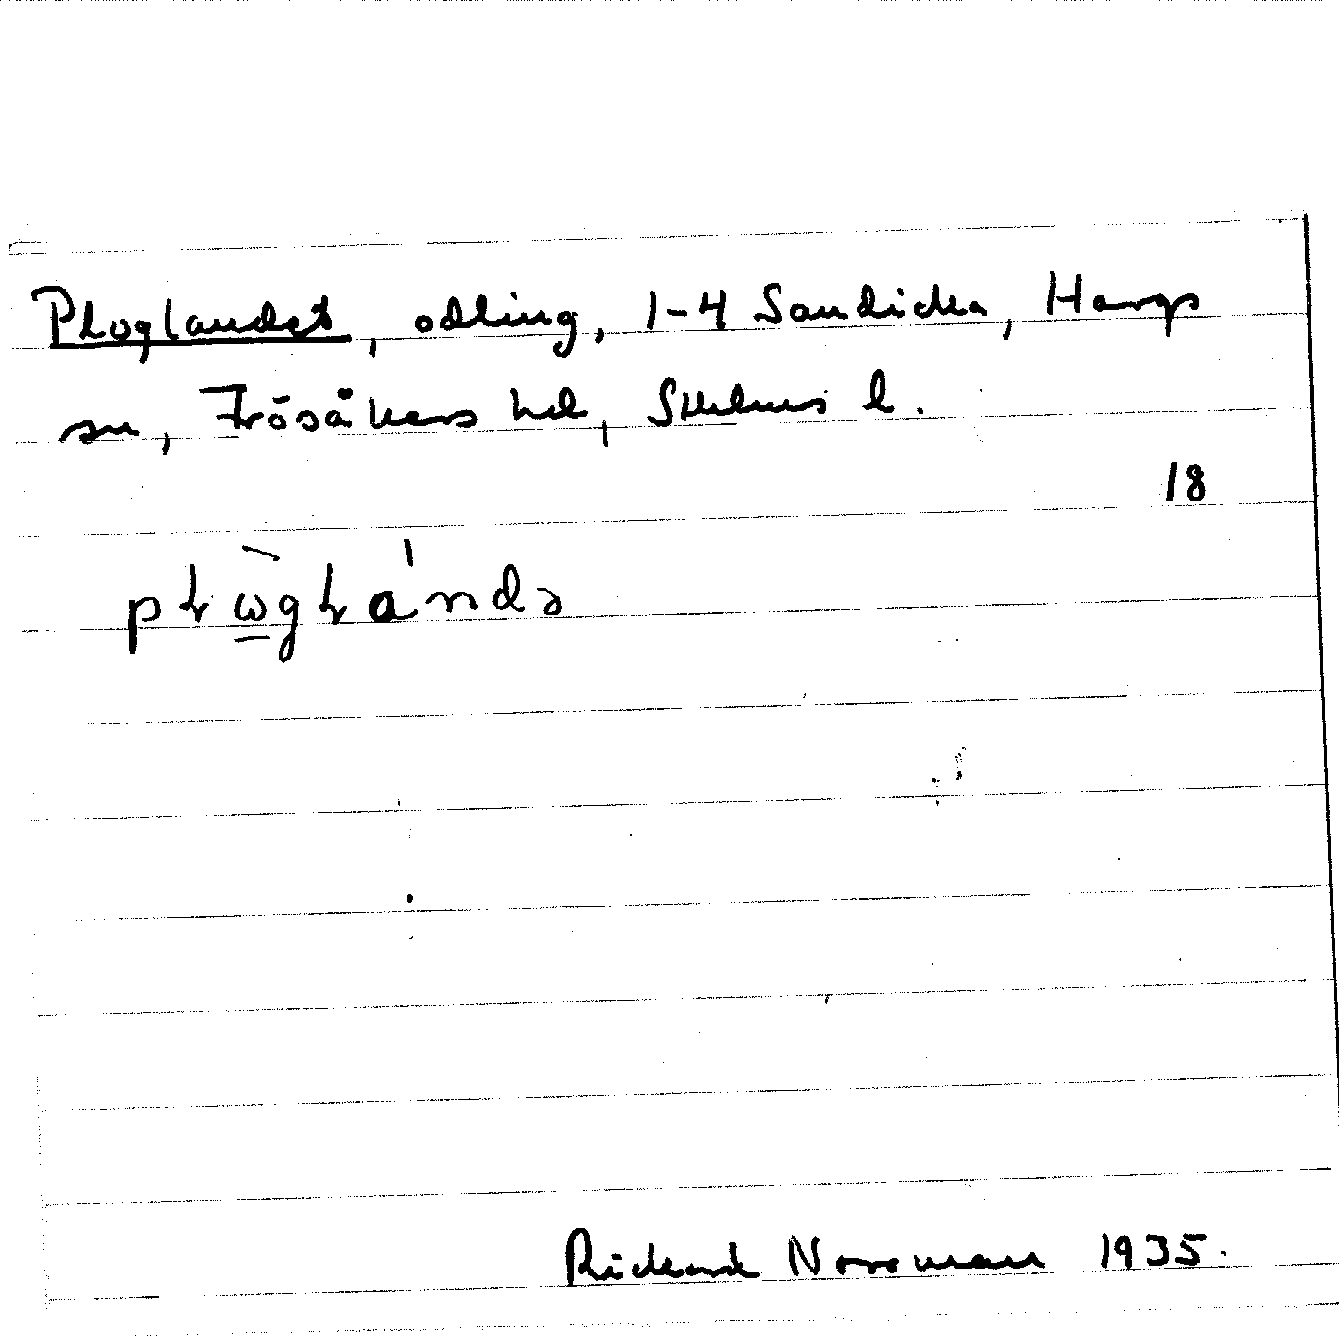 Ploglandet, odling, 1-4 Sandicka, Hargs
sn, Frösåkers hd, Sthlms l.
18
pƚὼ̲gƚándə
Rickard Norrman 1935.